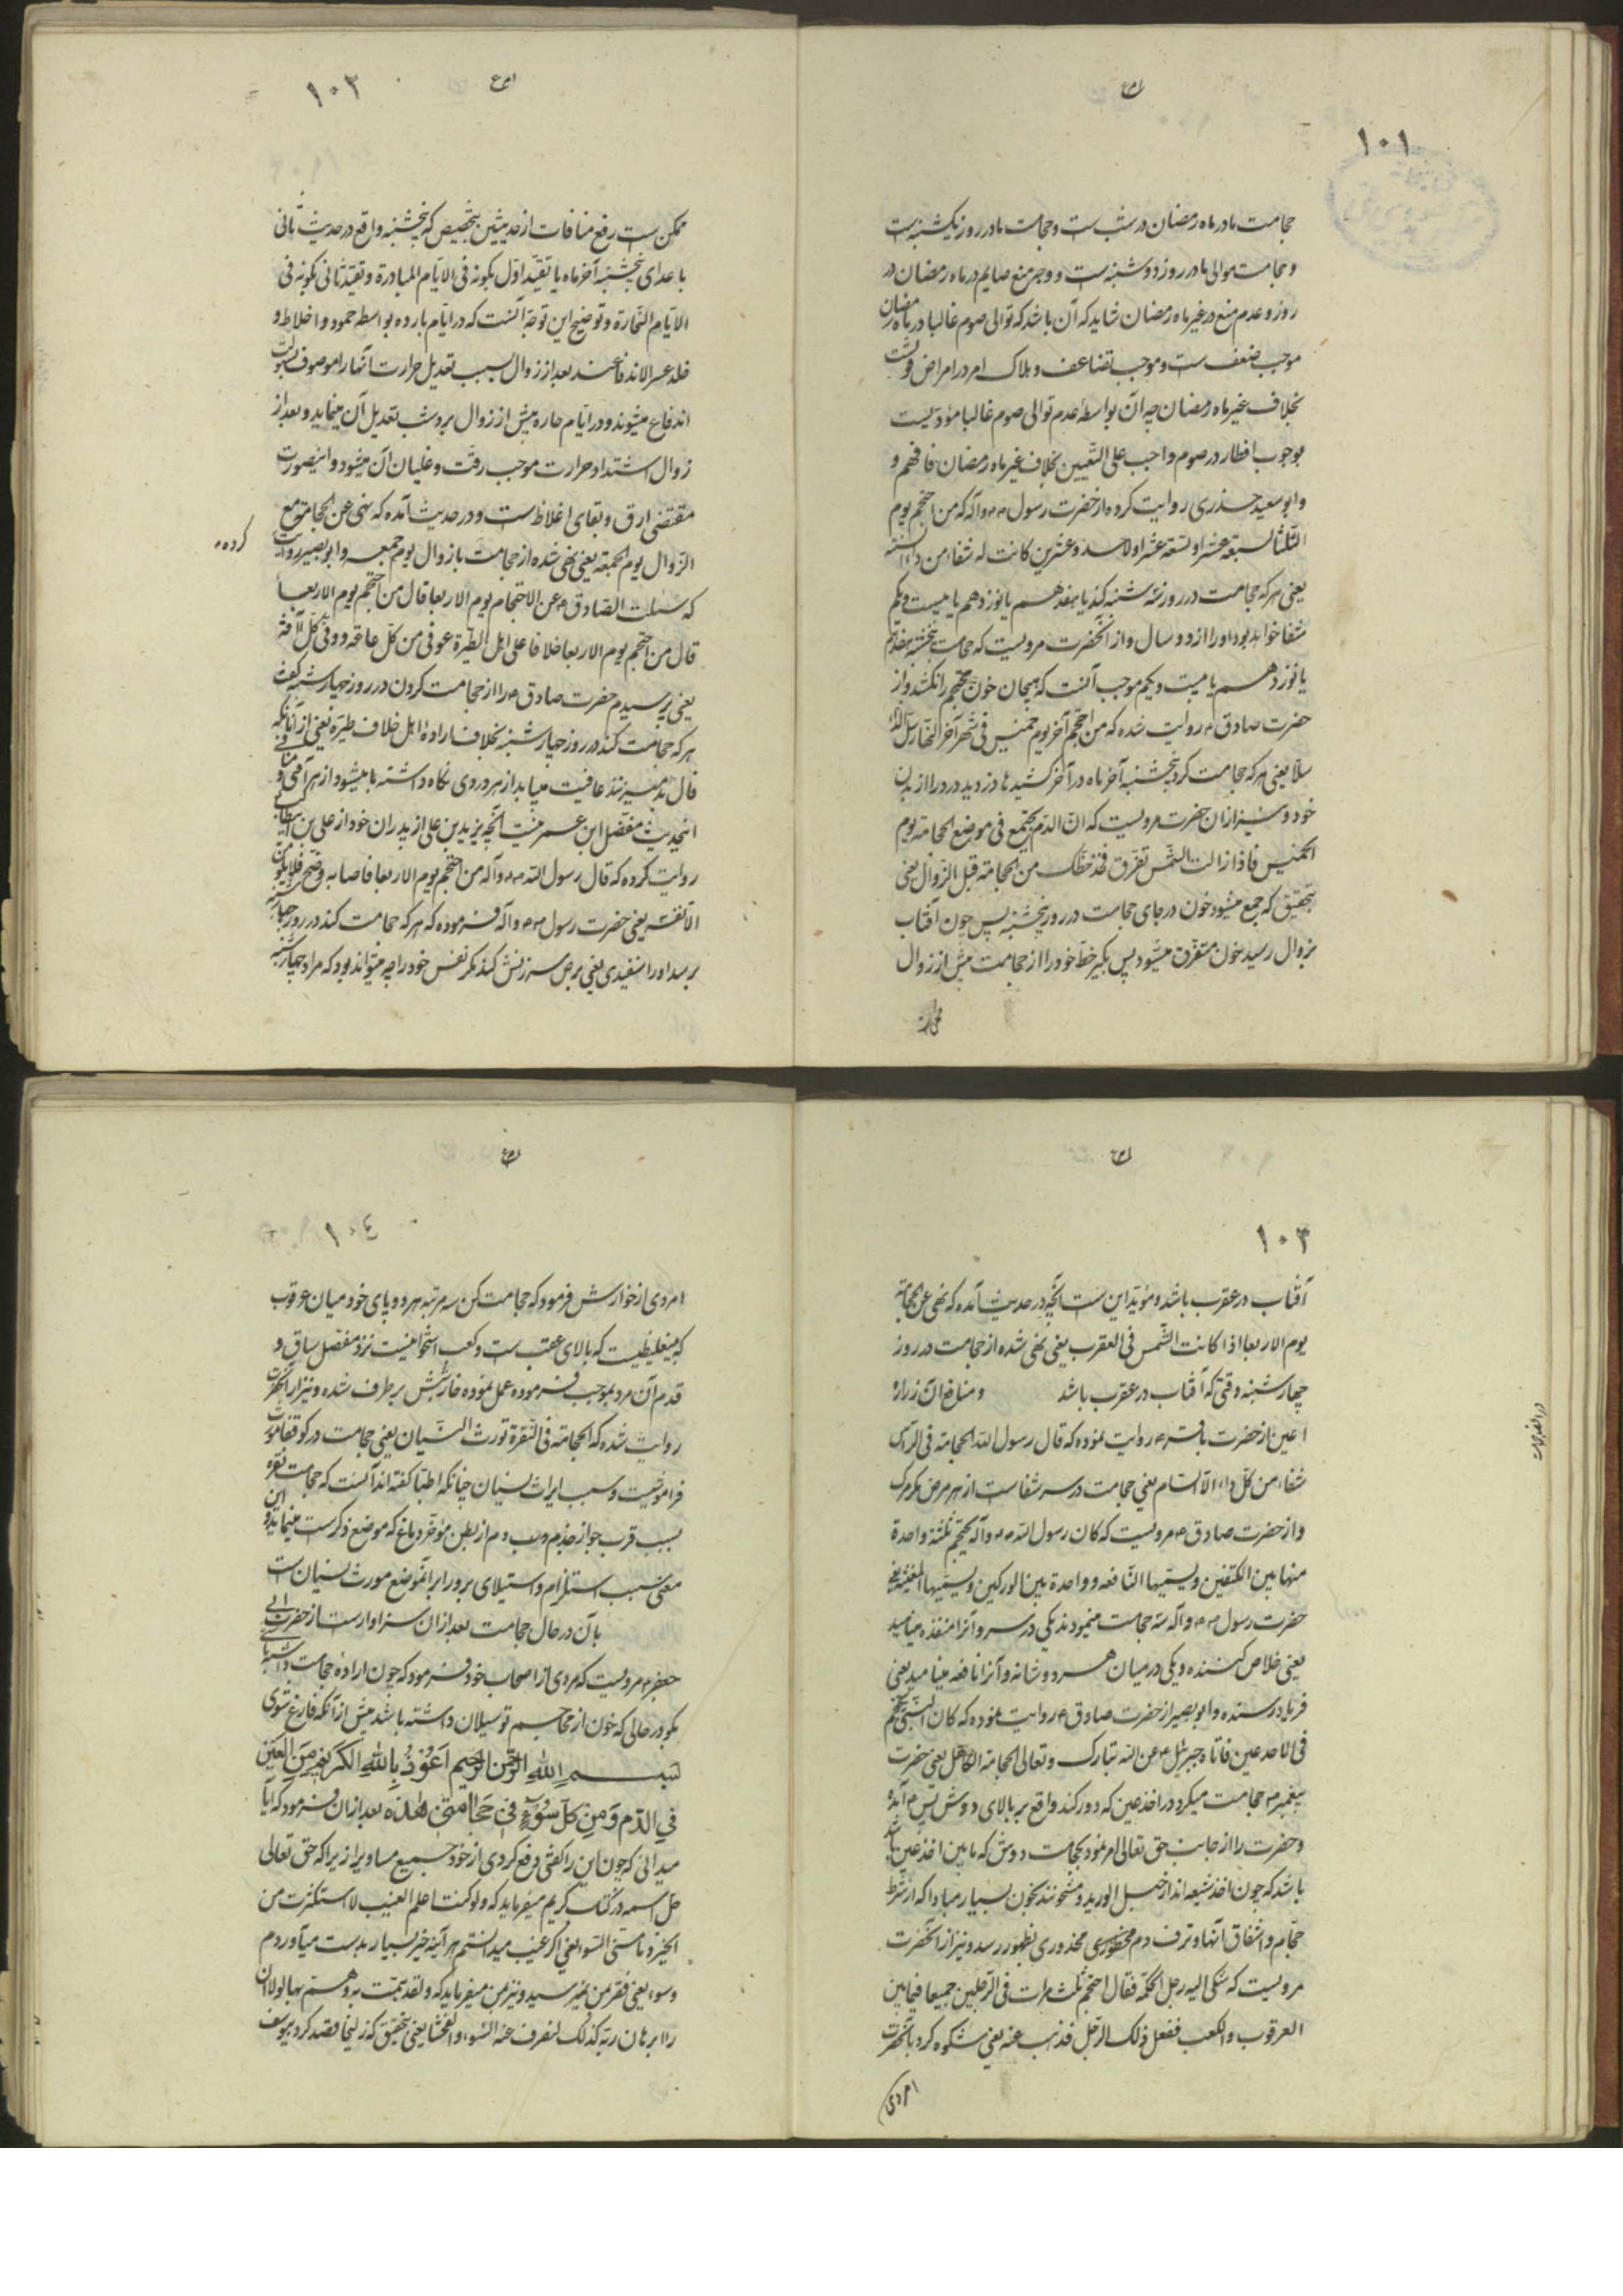 ۱۰۱
حجامت ما در ماه رمضان در شب ست و حجامت ما در روز یکشنبه ست
و حجامت موالی ما در روز دوشنبه ست و وجه منع صایم در ماه رمضان در
روز و عدم منع در غیر ماه رمضان شاید که آن باشد که توالی صوم غالبا در ماه رمضان
موجب ضعف ست و موجب تضاعف و هلاک امر در امراض
بخلاف غیر ماه رمضان چه آن بواسطهٔ عدم توالی صوم غالبا مؤدی نیست
بوجوب افطار در صوم واجب علی التعیین بخلاف غیر ماه رمضان فافهم و
و ابو سعید خدری روایت کرده از حضرت رسول ص و آله که من احتجم یوم
الثلثا لسبعة عشر او لتسعة عشر او لاحد و عشرین کانت له شفاء من داء السنه
یعنی هر که حجامت در روز سه شنبه کند یا هفدهم یا نوزدهم یا بیست و یکم
شفا خواهد بود او را از دو سال و از آنحضرت مرویست که حجامت پنجشنبه هفدهم
یا نوزدهم یا بیست و یکم موجب آنست که هیجان خون محتجم را نکشد و از
حضرت صادق ع روایت شده که من احتجم آخر یوم خمیس فی شهر آخر النهار سل الداء
سلا یعنی هر که حجامت کرد پنجشنبه آخر ماه در آخر کشید تا دزدید درد را از بدن
خود و نیز از آن حضرت مرویست که ان الدم یجتمع فی موضع الحجامة یوم
الخمیس فاذا زالت الشمس تفرق فخذ حظک من الحجامة قبل الزوال یعنی
بتحقیق که جمع میشود خون در جای حجامت در روز پنجشنبه پس چون آفتاب
بزوال رسید خون متفرق میشود پس بگیر حظ خود را از حجامت پیش از زوال
۱۰۲
ممکن ست رفع منافات از حدیثین بتخصیص که پنجشنبه واقع در حدیث ثانی
با عدای پنجشنبه آخر ماه یا تقید اول بکونه فی الایام المبادرة و تقید ثانی بکونه فی
الایام الحارة و توضیح این توجه آنست که در ایام بارده بواسطه جمود و اخلاط و
خلد عسر الاندفاعند بعد از زوال بسبب تعدیل حرارت آنها را موصوف بسهولت
اندفاع میشوند و در ایام حاره پیش از زوال برد شب تعدیل آن مینماید و بعد از
زوال اشتداد حرارت موجب رقت و غلیان آن میشود و اینصورت
مقتضی ارق و بقای اغلاظ ست و در حدیث آمده که نهی عن الحجامة مع
الزوال یوم الجمعة یعنی نهی شده از حجامت با زوال یوم جمعه و ابو بصیر روایت
کرده
که سئلت الصادق ع عن الاحتجام یوم الاربعا قال من احتجم یوم الاربعا
قال من احتجم یوم الاربعا خلافا علی اهل الطیرة عوفی من کل عاهة و وقی کل آفة
یعنی پرسیدم حضرت صادق ع را از حجامت کردن در روز چهارشنبه گفت
هر که حجامت کند در روز چهارشنبه بخلاف اراده اهل خلاف طیره یعنی از آنانکه
فال بد میزنند عافیت مییابد از هر دردی و نگاه داشته باشد میشود از هر آفتی و منافی
اینحدیث مفصل ابن عمر نیست آنچه یزید بن علی از پدران خود از علی بن ابیطالب
روایت کرده که قال رسول الله ص و آله من احتجم یوم الاربعا فاصابه وضح فلا یلومن
الا نفسه یعنی حضرت رسول ص و آله فرموده که هر که حجامت کند در روز چهارشنبه
برسد او را سفیدی یعنی برص سرزنش نکند مگر نفس خود را چه میتواند بود که مراد چهارشنبه
۱۰۳
آفتاب در عقرب باشد و مؤید این ست آنچه در حدیث آمده که نهی عن الحجامة
یوم الاربعا اذا کانت الشمس فی العقرب یعنی نهی شده از حجامت در روز
چهارشنبه وقتی که آفتاب در عقرب باشد و منافع آن زراره
اعین از حضرت باقر ع روایت نموده که قال رسول الله الحجامة فی الراس
شفاء من کل داء الا السام یعنی حجامت در سر شفا ست از هر مرض مگر مرگ
و از حضرت صادق ع مرویست که کان رسول الله ص و آله یحتجم ثلثة واحدة
منها بین الکتفین و یسمیها النافعه و واحدة بین الورکین و یسمیها المغیثه یعنی
حضرت رسول ص و آله سه حجامت مینمودند یکی در سر و آنرا منقذه مینامید
یعنی خلاص کننده و یکی در میان هر دو شانه و آنرا نافعه مینامید یعنی
فریاد رسنده و ابو بصیر از حضرت صادق ع روایت نموده که کان النبی یحتجم
فی الاخدعین فاتاه جبرئیل ع عن الله تبارک و تعالی الحجامة الکاهل یعنی حضرت
پیغمبر ص حجامت میکرد در اخدعین که دو رگند واقع بر بالای دوش پس آمد
و حضرت را از جانب حق تعالی امر نمود بحجامت دوش که ما بین اخدعین باشد
باشد که چون اخدعین شعبه اند از حبل الورید و مشحونند بخون بسیار مبادا که از شرط
حجام و اشقاق آنها و نزف دم محظوری محذوری بظهور رسد و نیز از آنحضرت
مرویست که شکی الیه رجل الحکة فقال احتجم ثلث مرات فی الرجلین جمیعا فیما بین
العرقوب و الکعب ففعل ذلک الرجل فذهب عنه یعنی شکوه کرد بآنحضرت
امردی
۱۰٤
امردی از خوارش فرمود که حجامت کن سه مرتبه هر دو پای خود میان عرقوب
که پی غلیظیست که بالای عقب ست و کعب استخوانیست نزد مفصل ساق و
قدم آن مرد بموجب فرموده عمل نموده خارش برطرف شده و نیز از آنحضرت
روایت شده که الحجامة فی النقرة تورث النسیان یعنی حجامت در گو قفا مورث
فراموشیست و سبب ایراث نسیان چنانکه اطبا گفته اند آنست که حجامت نقره
بسبب قرب جوار جذب دم از بطن مؤخر دماغ که موضع ذکر ست مینماید و این
معنی بسبب استلزام و استیلای برد را بر آنموضع مورث نسیان ست
بآن در حال حجامت بعد از ان سزاوار ست از حضرت ابی
جعفر ع مرویست که مردی از اصحاب خود فرمود که چون اراده حجامت داشته باشی
بگو در حالی که خون از محاجم تو سیلان داشته باشد پیش از آنکه فارغ شوی
بسم الله الرحمن الرحیم اعوذ بالله الکریم من العین
فی الدم و من کل سوء فی حجامتی هذه بعد از ان فرمود که آیا
میدانی که چون این را گفتی دفع کردی از خود جمیع مساویرا زیرا که حق تعالی
جل اسمه در کتاب کریم میفرماید که و لو کنت اعلم الغیب لا استکثرت من
الخیر و ما مسنی السوء یعنی اگر غیب میدانستم هر آینه خیر بسیار بدست میآوردم
و سوء یعنی فقر بمن نمیرسید و نیز من میفرماید که و لقد همت به و هم بها لولا ان
راا برهان ربه کذلک لنصرف عنه السوء و الفحشا یعنی بتحقیق که زلیخا قصد کرد بیوسف